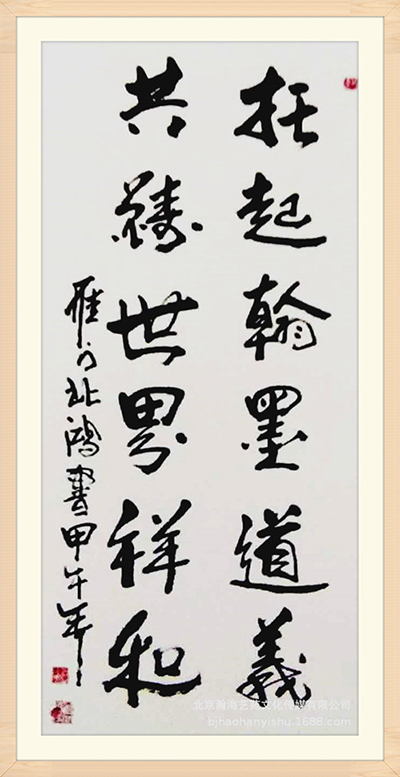 托起翰墨道義
共鑄世界祥和
雁门北鴻書甲午年
北京瀚海艺苑文化传媒公司
bjhaohanyishu.1688.com